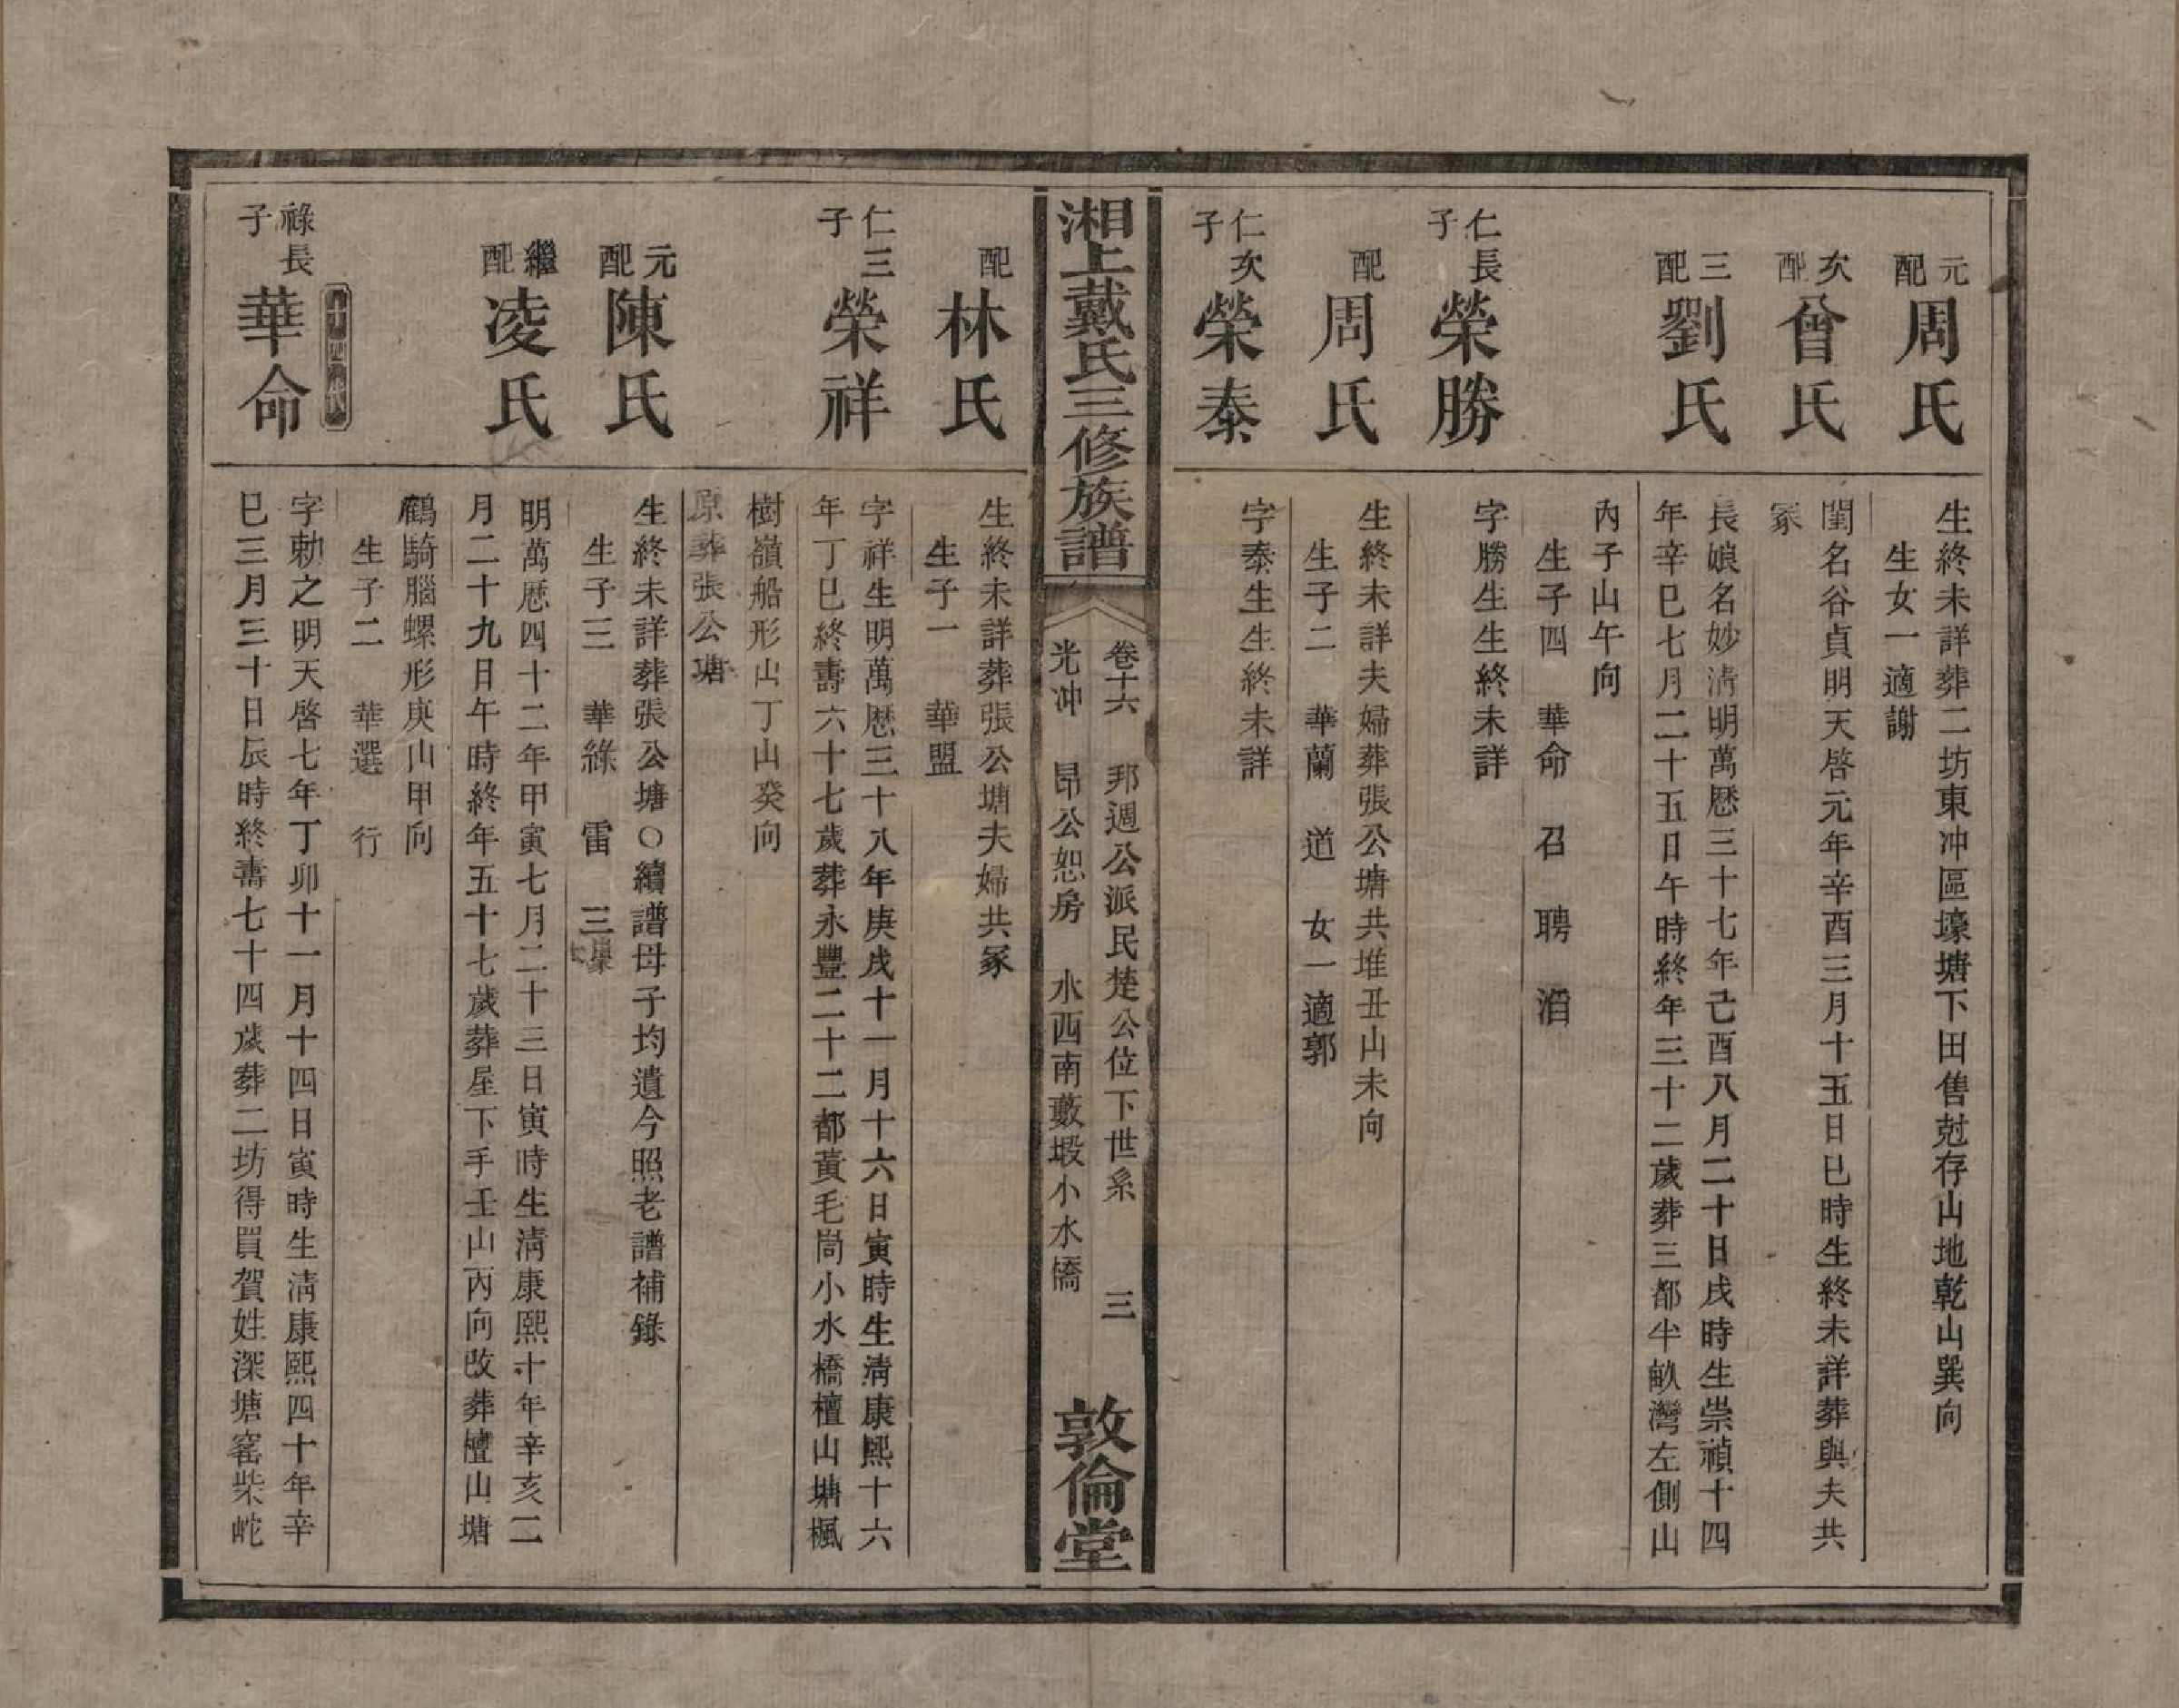 元配 周氏
生終未詳葬二坊東冲區壕塘下田售尅存山地乾山巽向
生女一適謝
次配 曾氏
閨名谷貞明天啓元年辛酉三月十五日巳時生終未詳葬與夫共
冢
三配 劉氏
長娘名妙清明萬歷三十七年己酉八月二十日戌時生崇禎十四
年辛巳七月二十五日午時終年三十二歲葬三都半畝灣左側山
內子山午向
生子四 華命 召 聘 滔
仁長子 榮勝
字勝生生終未詳
配 周氏
生終未詳夫婦葬張公塘共堆丑山未向
生子二 華蘭 道 女一適郭
仁次子 榮泰
字泰生生終未詳
湘上戴氏三修族譜
卷十六 邦週公派民楚公位下世系 三
光冲 昂公恕房 水西南藪塅小水橋
敦倫堂
配 林氏
生終未詳葬張公塘夫婦共冢
生子一 華盟
仁三子 榮祥
字祥生明萬歷三十八年庚戌十一月十六日寅時生清康熙十六
年丁巳終壽六十七歲葬永豐二十二都黃毛崗小水橋檀山塘楓
樹嶺船形山丁山癸向
原葬張公塘
元配 陳氏
生終未詳葬張公塘○續譜母子均遺今照老譜補錄
生子三 華綠 雷 三
繼配 凌氏
明萬歷四十二年甲寅七月二十三日寅時生清康熙十年辛亥二
月二十九日午時終年五十七歲葬屋下手壬山丙向改葬檀山塘
鶴騎腦螺形庚山甲向
生子二 華選 行
二十四派
祿長子 華命
字勅之明天啓七年丁卯十一月十四日寅時生清康熙四十年辛
巳三月三十日辰時終壽七十四歲葬二坊得買賀姓深塘窰柴屹